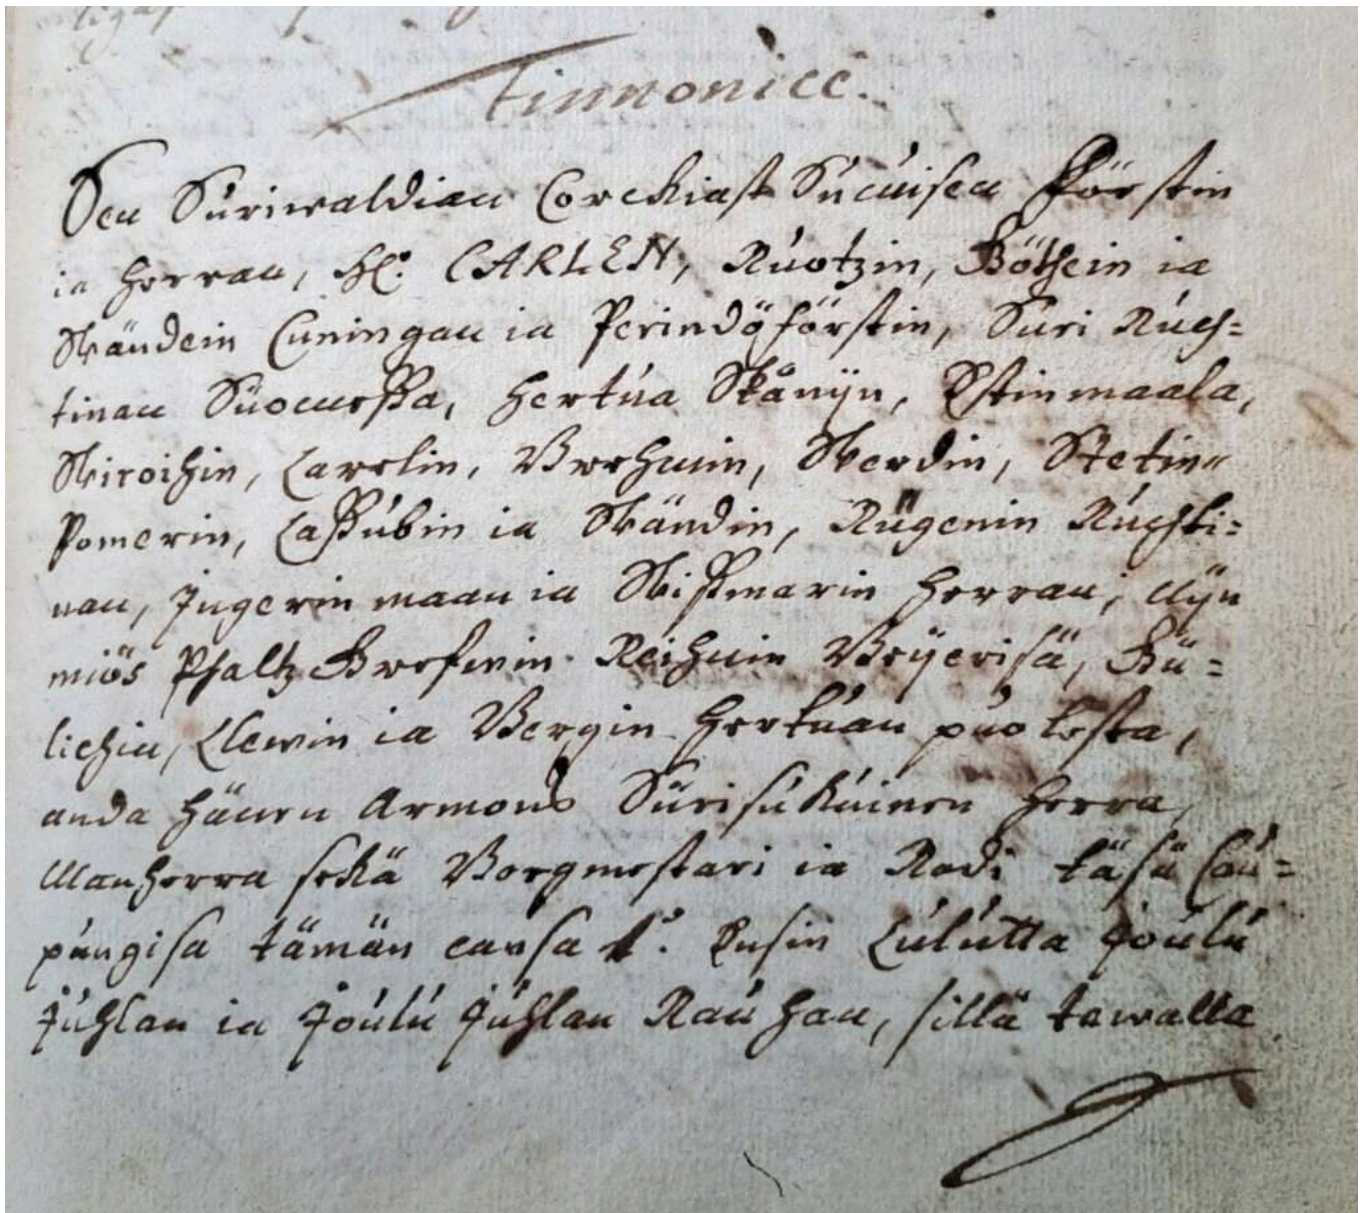 Finnonicè.
Sen Suriwaldian Corckiast Sucuisen Förstin
ia Herran, H:r CARLEN, Ruotzin, Göthein ia
Wändein Cuningan ia Perindöförstin, Suri Ruch=
tinan Suomessa, Hertua Skånijn, Estinmaala,
Wiroihin, Carelin, Brehmin, Werdin, Stetin=
Pomerin, Cassubin ia Wändin, Rügenin Ruchti=
nan, Ingerinmaan ia Wissmarin Herran; Nijn
miös Pfaltz Grefwin Reihnin Beijerisä, Gü=
lichin, Clewin ia Bergin Hertuan puolesta,
anda hänen Armons Surisukuinen Herra
Manherra sekä Borgmestari ia Radi täsä Cau=
pungisa tämän cansa Ensin Lulutta Joulu
Juhlan ia Joulu Juhlan Rauhan, sillä tawalla